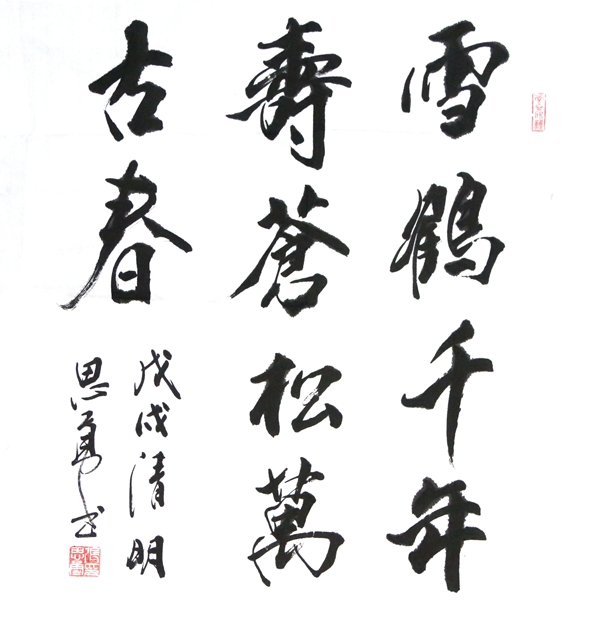 雪鶴千年
壽蒼松萬
古春
戊戌清明
思勇书